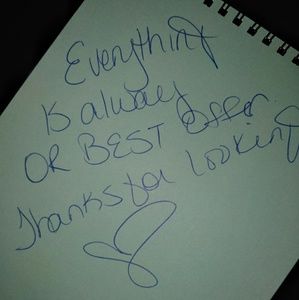 Everything
is always
OR BEST offer.
Thanks you Looking